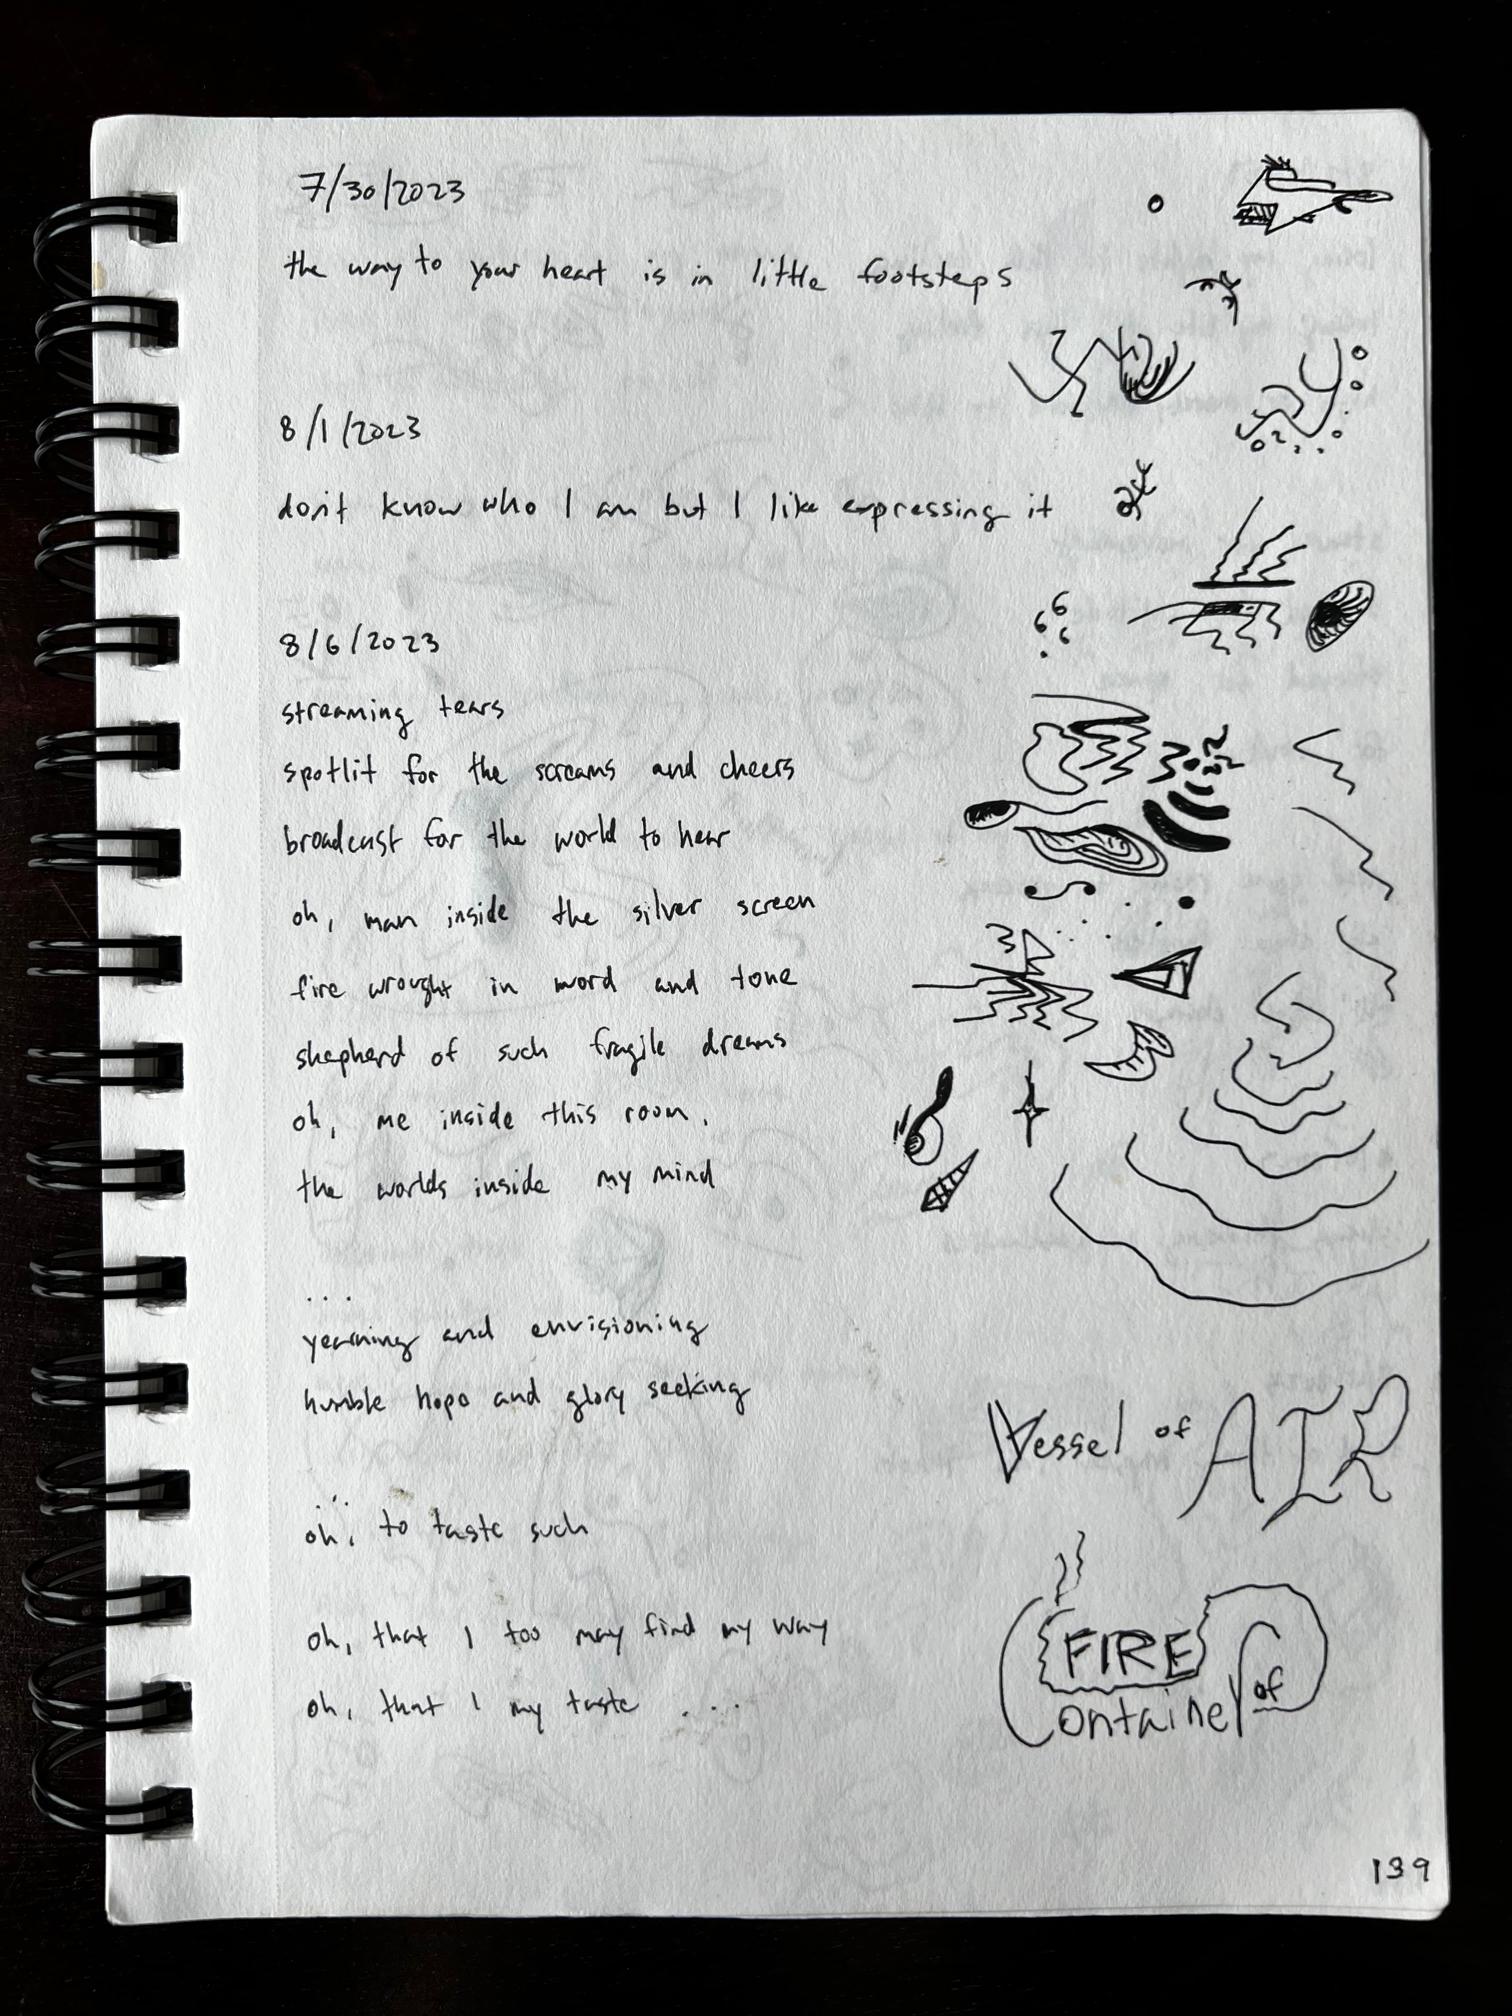 7/30/2023
the way to your heart is in little footsteps
8/1/2023
don't know who I am but I like expressing it
8/6/2023
streaming tears
spotlit for the screams and cheers
broadcast for the world to hear
oh, man inside the silver screen
fire wrought in word and tone
shepherd of such fragile dreams
oh, me inside this room,
the worlds inside my mind
...
yearning and envisioning
humble hope and glory seeking
...
oh, to taste such
oh, that I too may find my way
oh, that I my taste ....
Vessel of AIR
FIRE
Container of
139